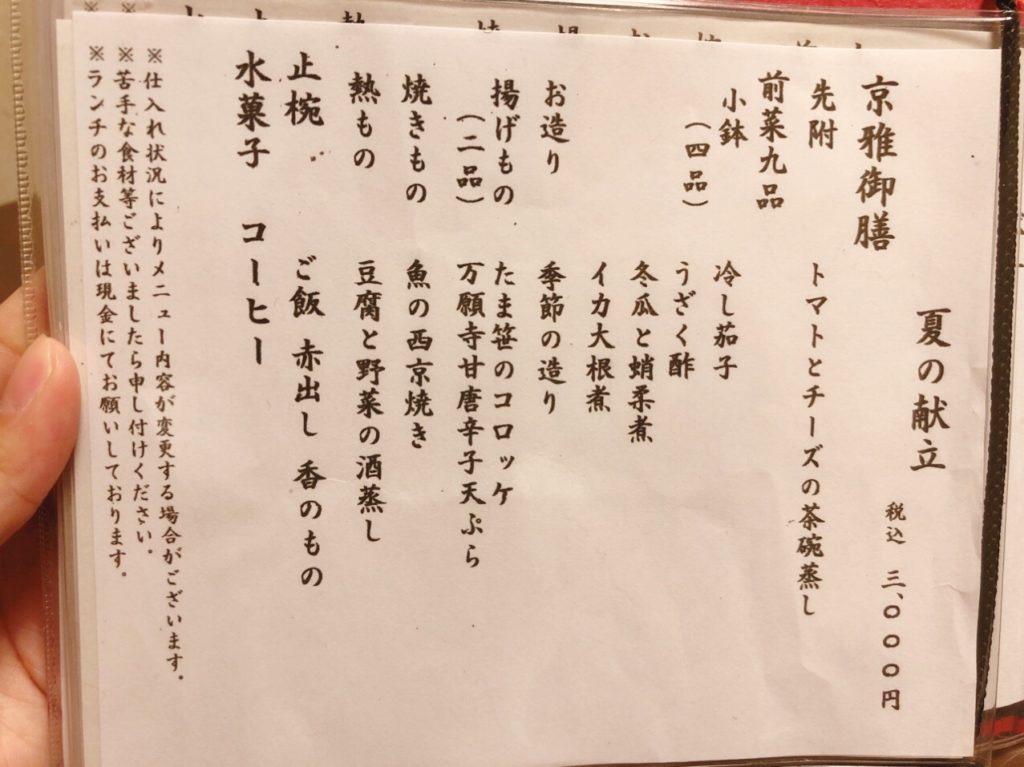 夏の献立
京雅御膳
税込 三、〇〇〇円
先附 トマトとチーズの茶碗蒸し
前菜九品
小鉢 冷し茄子
(四品) うざく酢
冬瓜と蛸柔煮
イカ大根煮
お造り 季節の造り
揚げもの たま笹のコロッケ
(二品) 万願寺甘唐辛子天ぷら
焼きもの 魚の西京焼き
熱もの 豆腐と野菜の酒蒸し
止椀 ご飯 赤出し 香のもの
水菓子 コーヒー
※仕入れ状況によりメニュー内容が変更する場合がございます。
※苦手な食材等ございましたら申し付けください。
※ランチのお支払いは現金にてお願いしております。